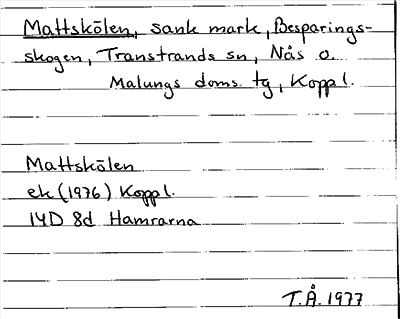 Mattskölen, sank mark, Besparings-
skogen, Transtrands sn, Nås o.
Malungs doms. tg, Koppl.
Mattskölen
ek (1976) Koppl.
14D 8d Hamrarna
T.Å. 1977